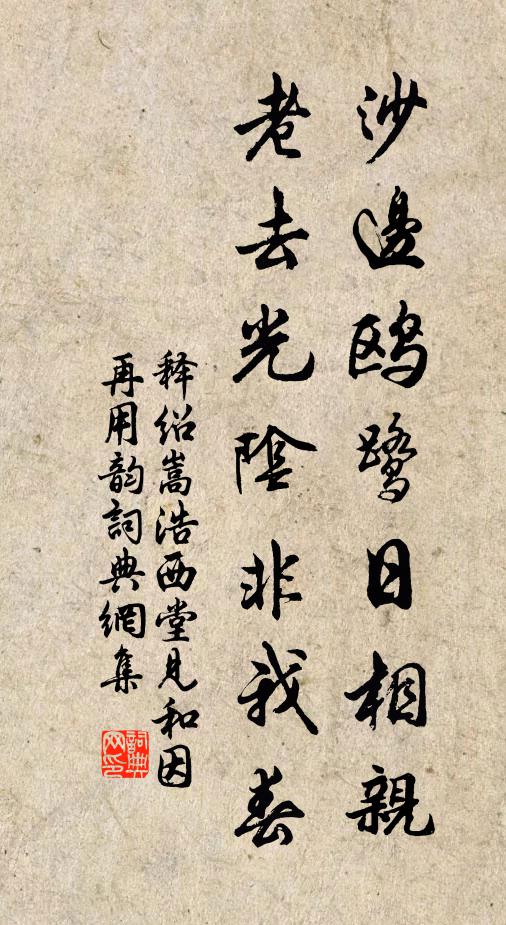 沙邊鷗鷺日相親
老去光陰非我春
释绍嵩浩西堂見和因
再用韵詞典網集
詞典
网印